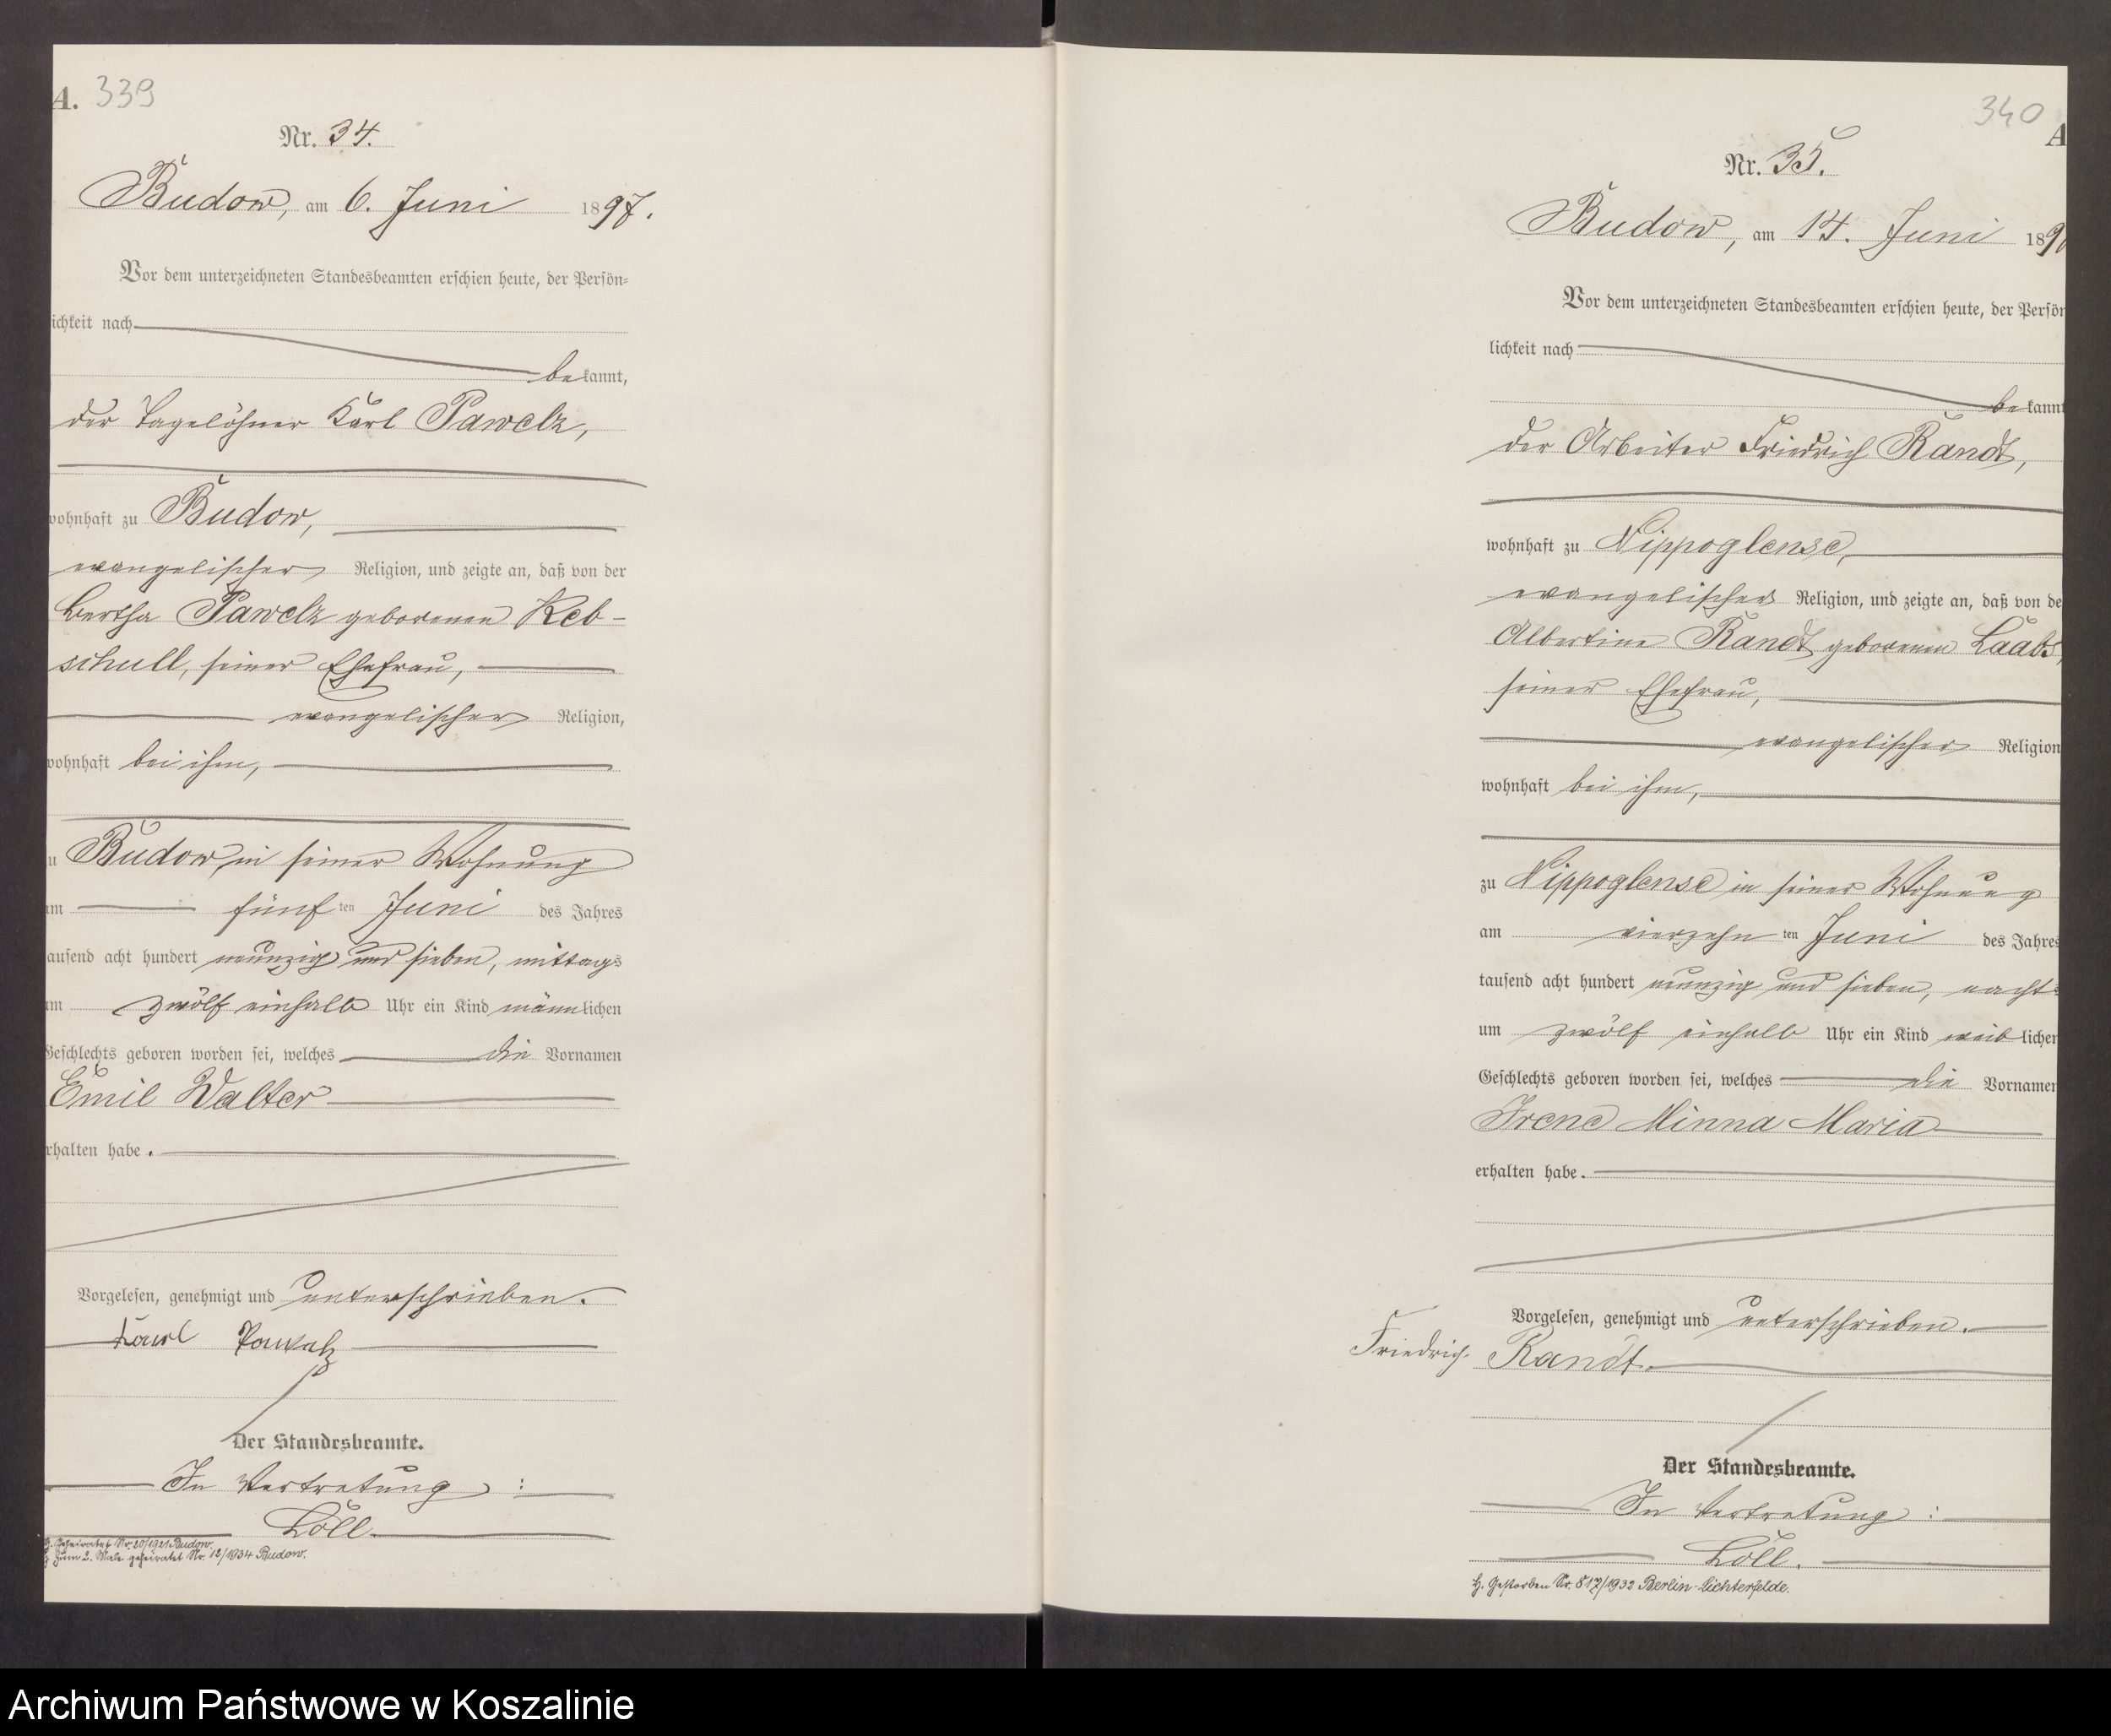 A. 339
Nr. 34.
Budow, am 6. Juni 1897.
Vor dem unterzeichneten Standesbeamten erschien heute, der Persön-
ichkeit nach
bekannt,
der Tagelöhner Karl Pawelz,
wohnhaft zu Budow,
evangelischer Religion, und zeigte an, daß von der
Bertha Pawelz geborenen Reb-
schull, seiner Ehefrau,
evangelischer Religion,
wohnhaft bei ihm,
u Budow, in seiner Wohnung
am fünf ten Juni des Jahres
tausend acht hundert neunzig und sieben, mittags
um zwölf einhalb Uhr ein Kind männlichen
Geschlechts geboren worden sei, welches die Vornamen
Emil Walter
rhalten habe.
Vorgelesen, genehmigt und unterschrieben.
Karl Pawelz
Der Standesbeamte.
In Vertretung:
Löll
Geheiratet Nr. 20/1921 Budow.
Zum 2. Male geheiratet Nr. 12/1934 Budow.
340
A
Nr. 35.
Budow, am 14. Juni 189
Vor dem unterzeichneten Standesbeamten erschien heute, der Persön
lichkeit nach
bekannt
der Arbeiter Friedrich Randt,
wohnhaft zu Nippoglense,
evangelischer Religion, und zeigte an, daß von de
Albertine Randt geborenen Laabs,
seiner Ehefrau,
evangelischer Religion
wohnhaft bei ihm,
zu Nippoglense in seiner Wohnung
am vierzehn ten Juni des Jahres
tausend acht hundert neunzig und sieben, nachts
um zwölf einhalb Uhr ein Kind weiblichen
Geschlechts geboren worden sei, welches die Vornamen
Irene Minna Maria
erhalten habe.
Vorgelesen, genehmigt und unterschrieben.
Friedrich Randt.
Der Standesbeamte.
In Vertretung:
Löll.
H. Gestorben Nr. 817/1932 Berlin-Lichterfelde.
Archiwum Państwowe w Koszalinie